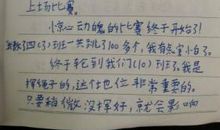 上场比赛。
惊心动魄的比赛终于开始了!
四(3)班一共跳了100多个,我有些小白了。
终于轮到我们(10)班了,我是
挥绳子的,这个位非常重要的。
只要稍微没挥好,就会影响